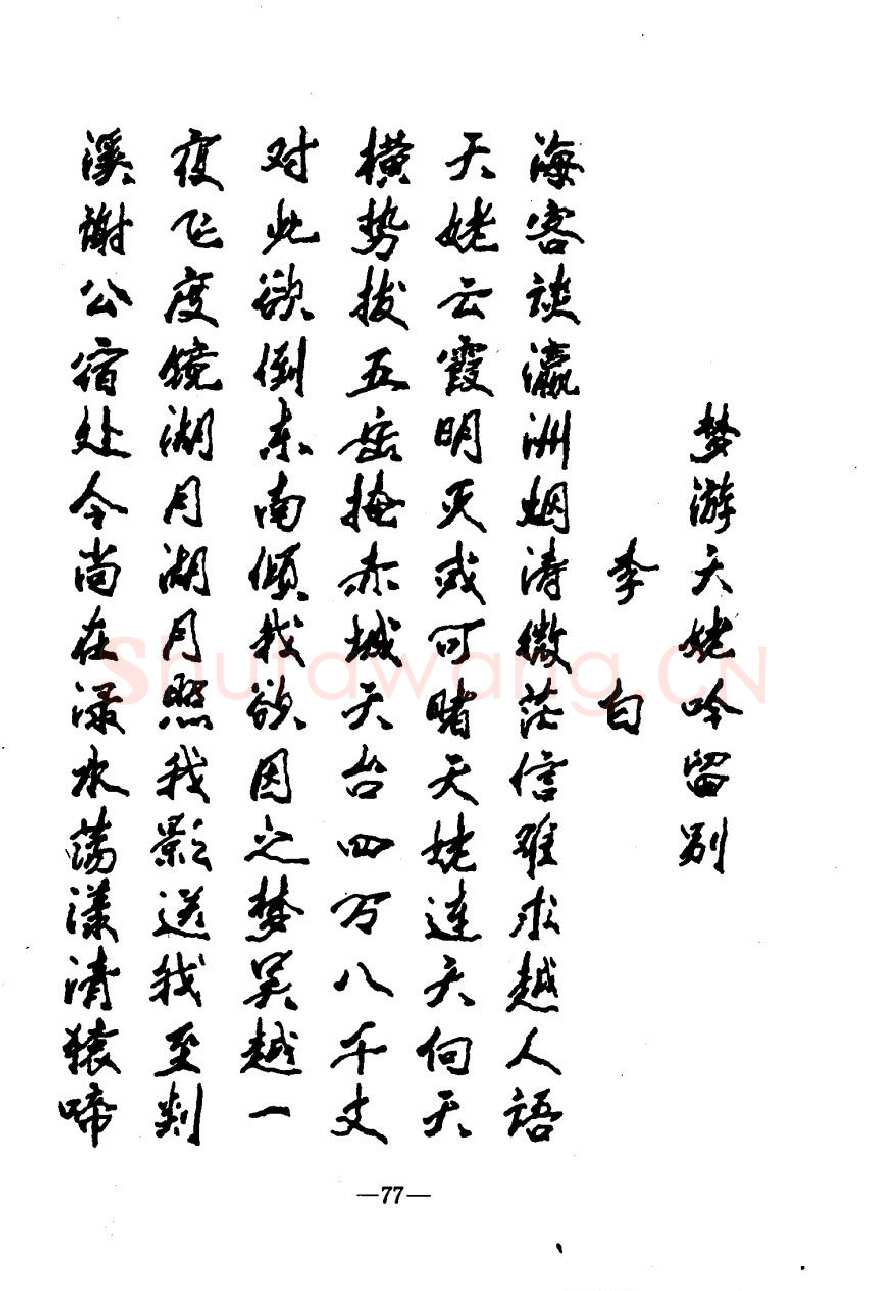 梦游天姥吟留别
李白
海客谈瀛洲烟涛微茫信难求越人语
天姥云霞明灭或可睹天姥连天向天
横势拔五岳掩赤城天台四万八千丈
对此欲倒东南倾我欲因之梦吴越一
夜飞度镜湖月湖月照我影送我至剡
溪谢公宿处今尚在渌水荡漾清猿啼
—77—
Shufawang.CN